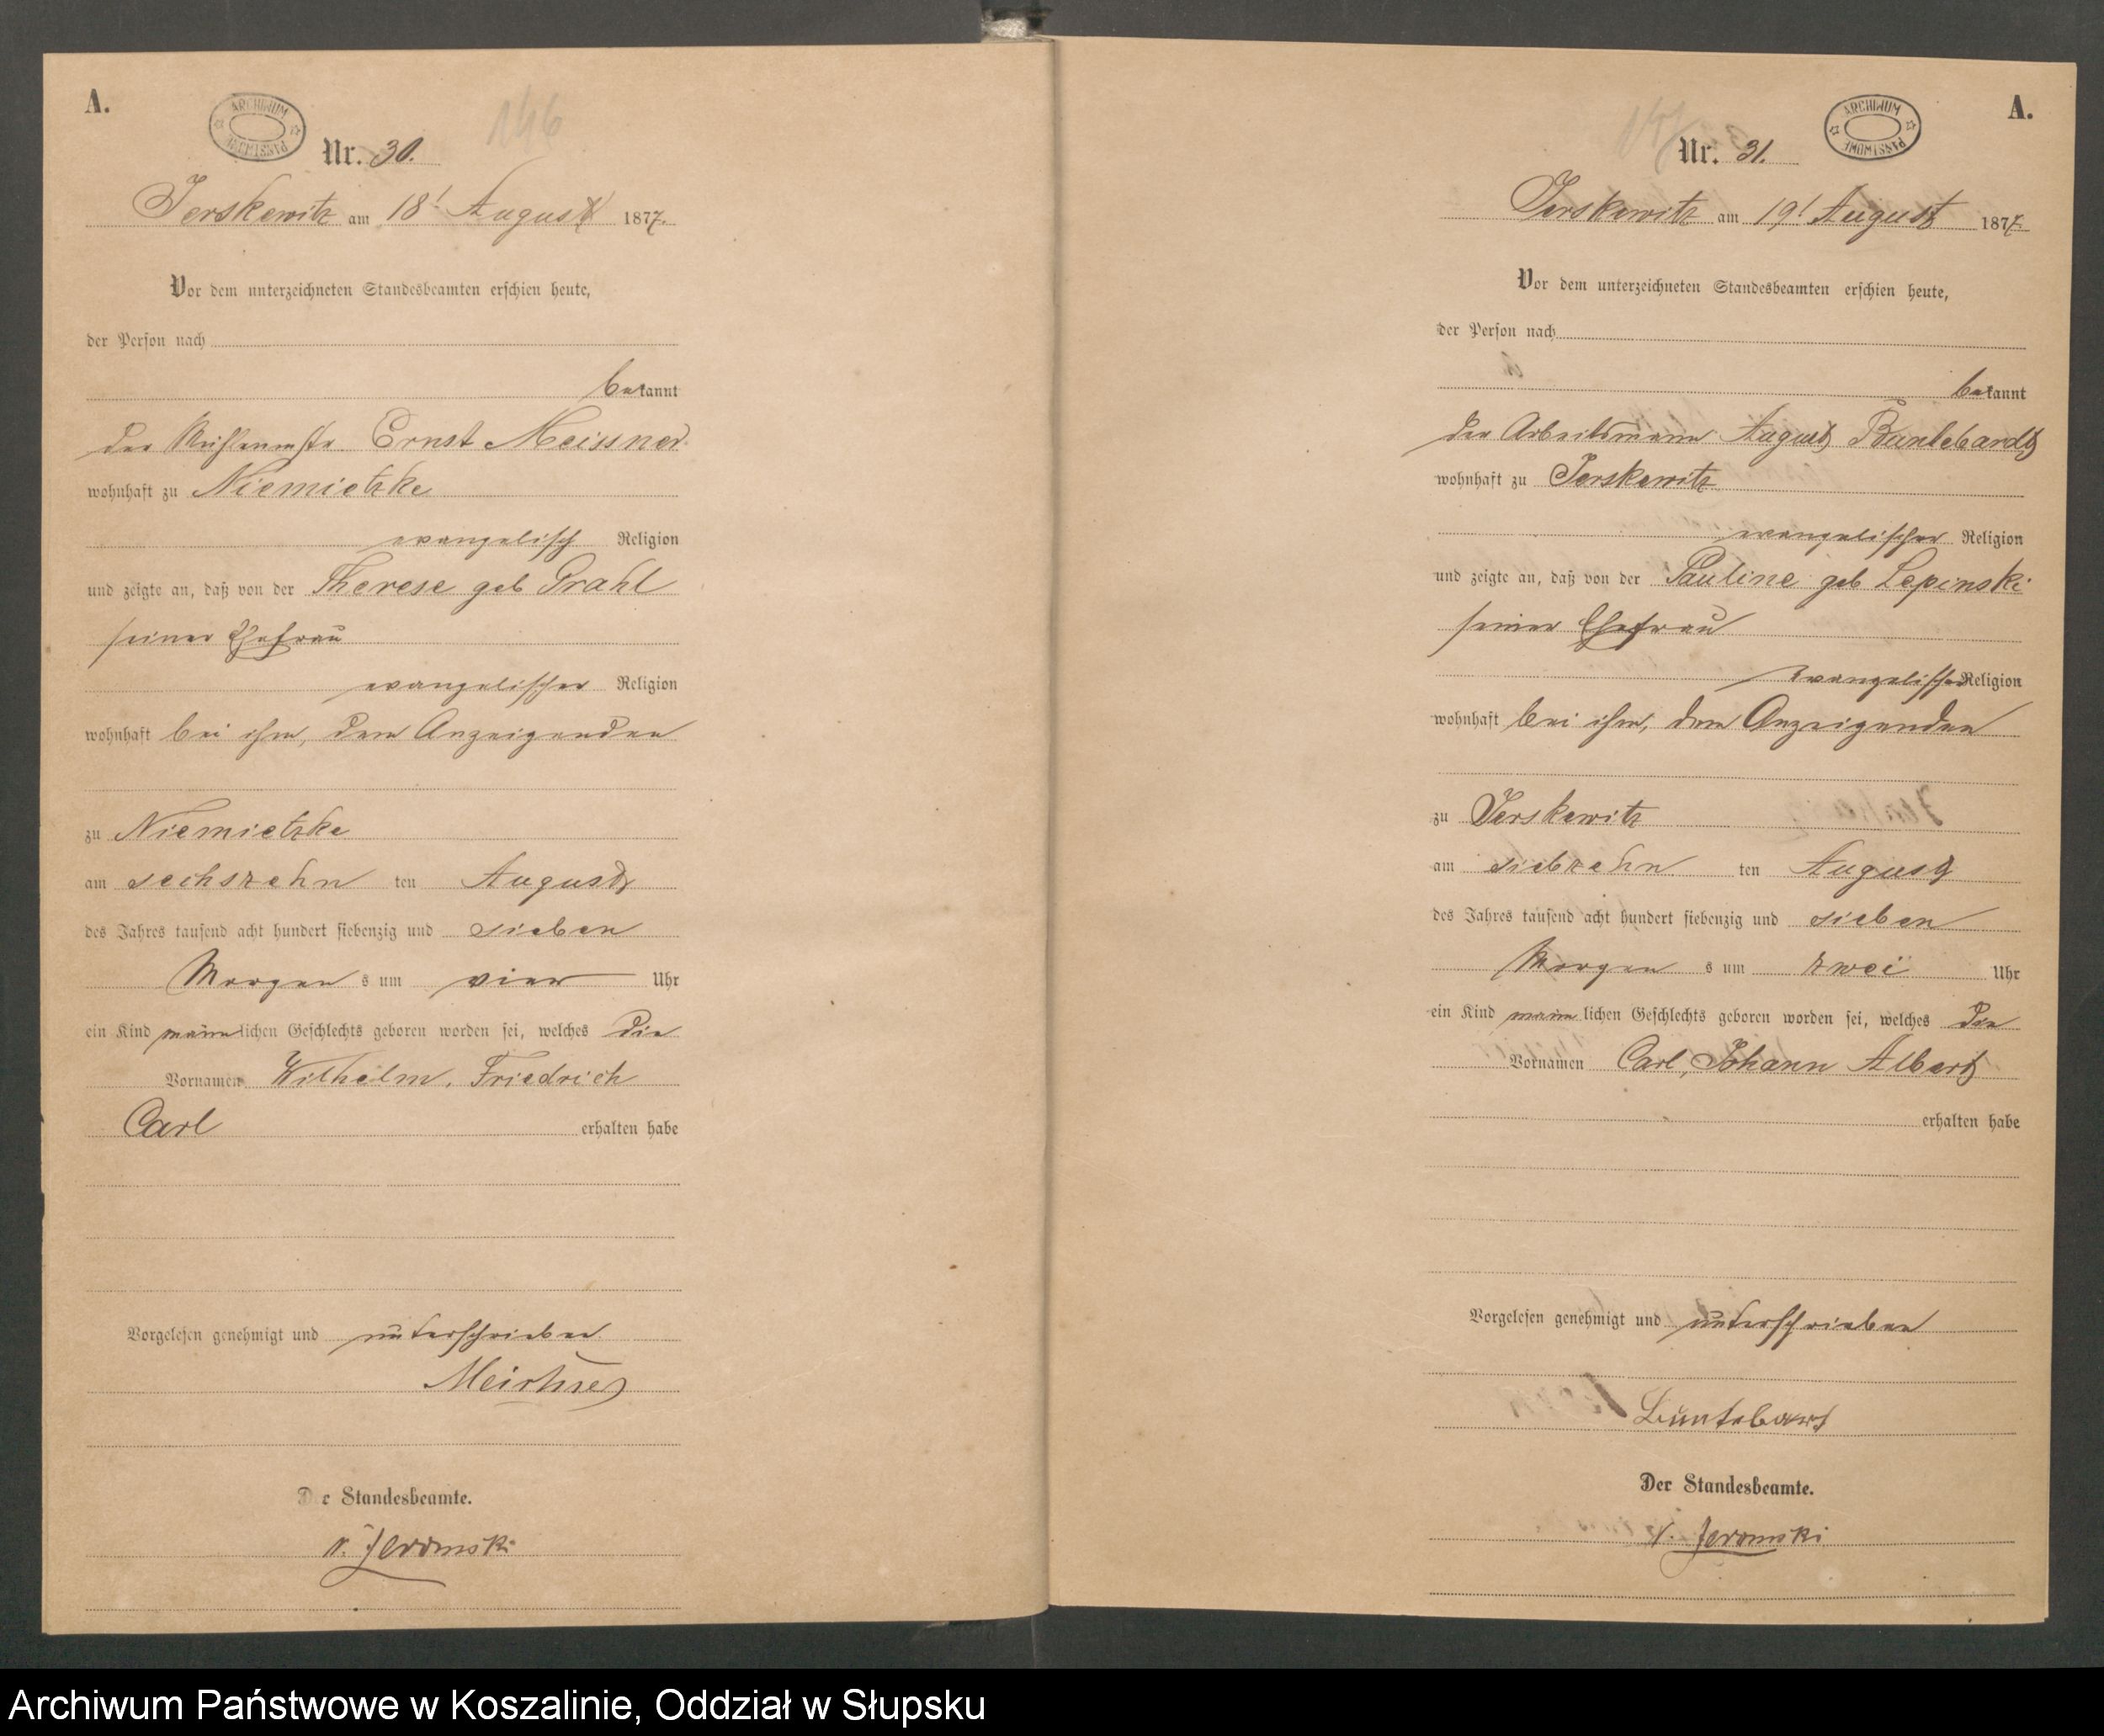 A.
ARCHIWUM
PAŃSTWOWE
146
Nr. 30.
Jerskewitz am 18t August 1877.
Vor dem unterzeichneten Standesbeamten erschien heute,
der Person nach
bekannt
der Mühlenmstr. Ernst Meissner.
wohnhaft zu Niemietzke
evangelisch Religion
und zeigte an, daß von der Therese geb Prahl
seiner Ehefrau
evangelischer Religion
wohnhaft bei ihm, dem Anzeigenden
zu Niemietzke
am sechszehn ten August
des Jahres tausend acht hundert siebenzig und sieben
Morgen s um vier Uhr
ein Kind männlichen Geschlechts geboren worden sei, welches die
Vornamen Wilhelm, Friedrich
Carl erhalten habe
Vorgelesen genehmigt und unterschrieben
Meissner
Der Standesbeamte.
v. Jeromski
A.
ARCHIWUM
PAŃSTWOWE
147
Nr. 31.
Jerskewitz am 19t August 1877.
Vor dem unterzeichneten Standesbeamten erschien heute,
der Person nach
bekannt
der Arbeitsmann August Buntebardt
wohnhaft zu Jerskewitz
evangelischer Religion
und zeigte an, daß von der Pauline geb Lepinski
seiner Ehefrau
evangelischer Religion
wohnhaft bei ihm, dem Anzeigenden
zu Jerskewitz
am siebzehn ten August
des Jahres tausend acht hundert siebenzig und sieben
Morgen s um zwei Uhr
ein Kind männlichen Geschlechts geboren worden sei, welches die
Vornamen Carl, Johann Albert
erhalten habe
Vorgelesen genehmigt und unterschrieben
Buntebart
Der Standesbeamte.
v. Jeromski
Archiwum Państwowe w Koszalinie, Oddział w Słupsku